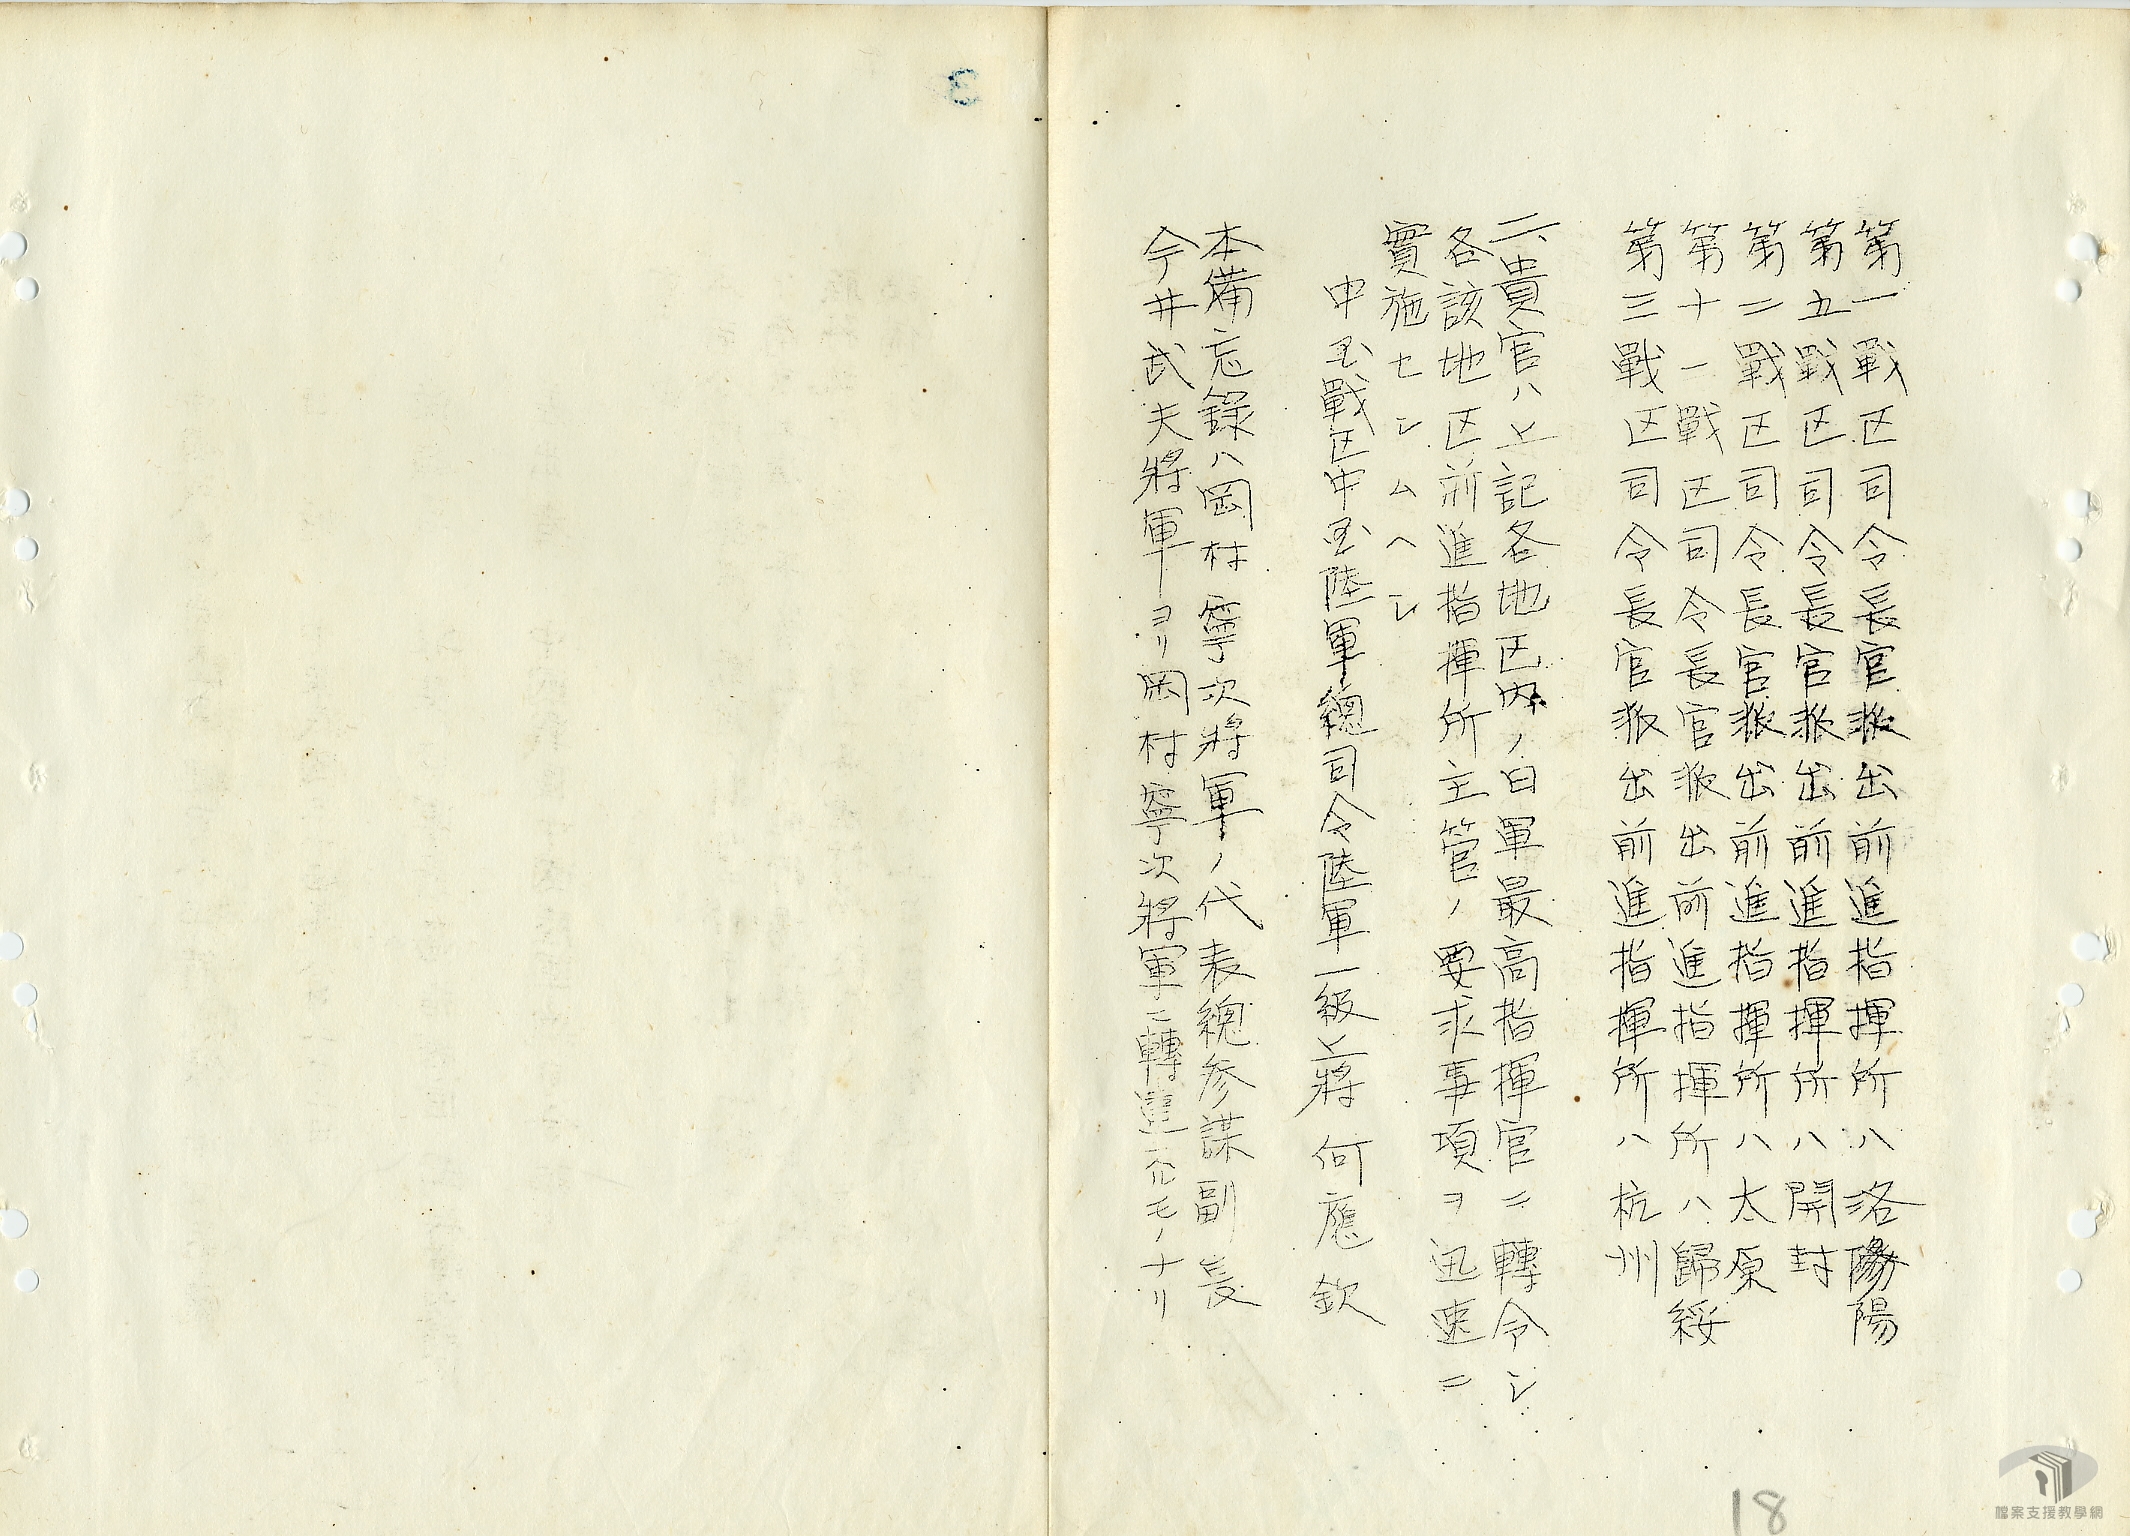 第一戰区司令長官派出前進指揮所ハ洛陽
第五戰区司令長官派出前進指揮所ハ開封
第二戰区司令長官派出前進指揮所ハ太原
第十一戰区司令長官派出前進指揮所ハ歸綏
第三戰区司令長官派出前進指揮所ハ杭州
二、貴官ハ上記各地区内ノ日軍最高指揮官ニ轉令シ
各該地区前進指揮所主管ノ要求事項ヲ迅速ニ
實施セシムヘシ
中国戰区中国陸軍總司令陸軍一級上將 何應欽
本備忘錄ハ岡村寧次將軍ノ代表總参謀副長
今井武夫將軍ヨリ岡村寧次將軍ニ轉達スルモノナリ
3
18
檔案支援教學網